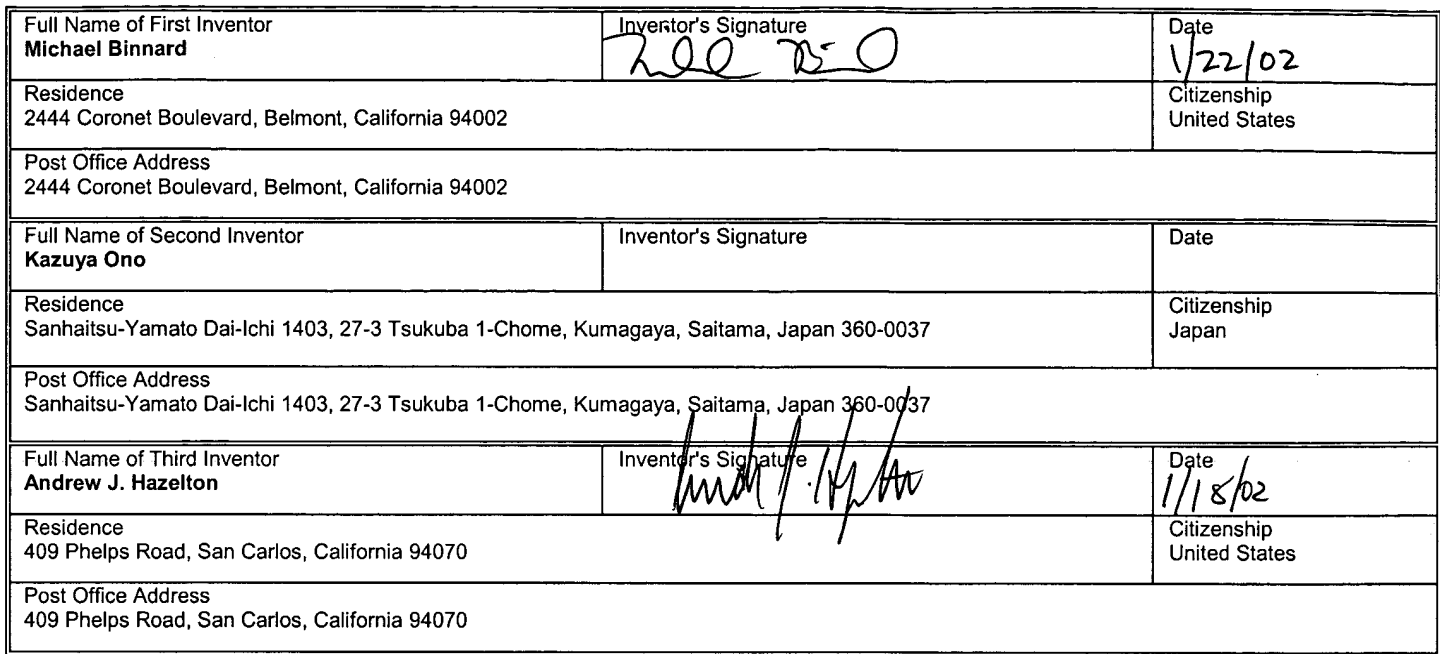 Full Name of First Inventor
Michael Binnard
Inventor's Signature
Date
1/22/02
Residence
2444 Coronet Boulevard, Belmont, California 94002
Citizenship
United States
Post Office Address
2444 Coronet Boulevard, Belmont, California 94002
Full Name of Second Inventor
Kazuya Ono
Inventor's Signature
Date
Residence
Sanhaitsu-Yamato Dai-Ichi 1403, 27-3 Tsukuba 1-Chome, Kumagaya, Saitama, Japan 360-0037
Citizenship
Japan
Post Office Address
Sanhaitsu-Yamato Dai-Ichi 1403, 27-3 Tsukuba 1-Chome, Kumagaya, Saitama, Japan 360-0037
Full Name of Third Inventor
Andrew J. Hazelton
Inventor's Signature
Date
1/18/02
Residence
409 Phelps Road, San Carlos, California 94070
Citizenship
United States
Post Office Address
409 Phelps Road, San Carlos, California 94070